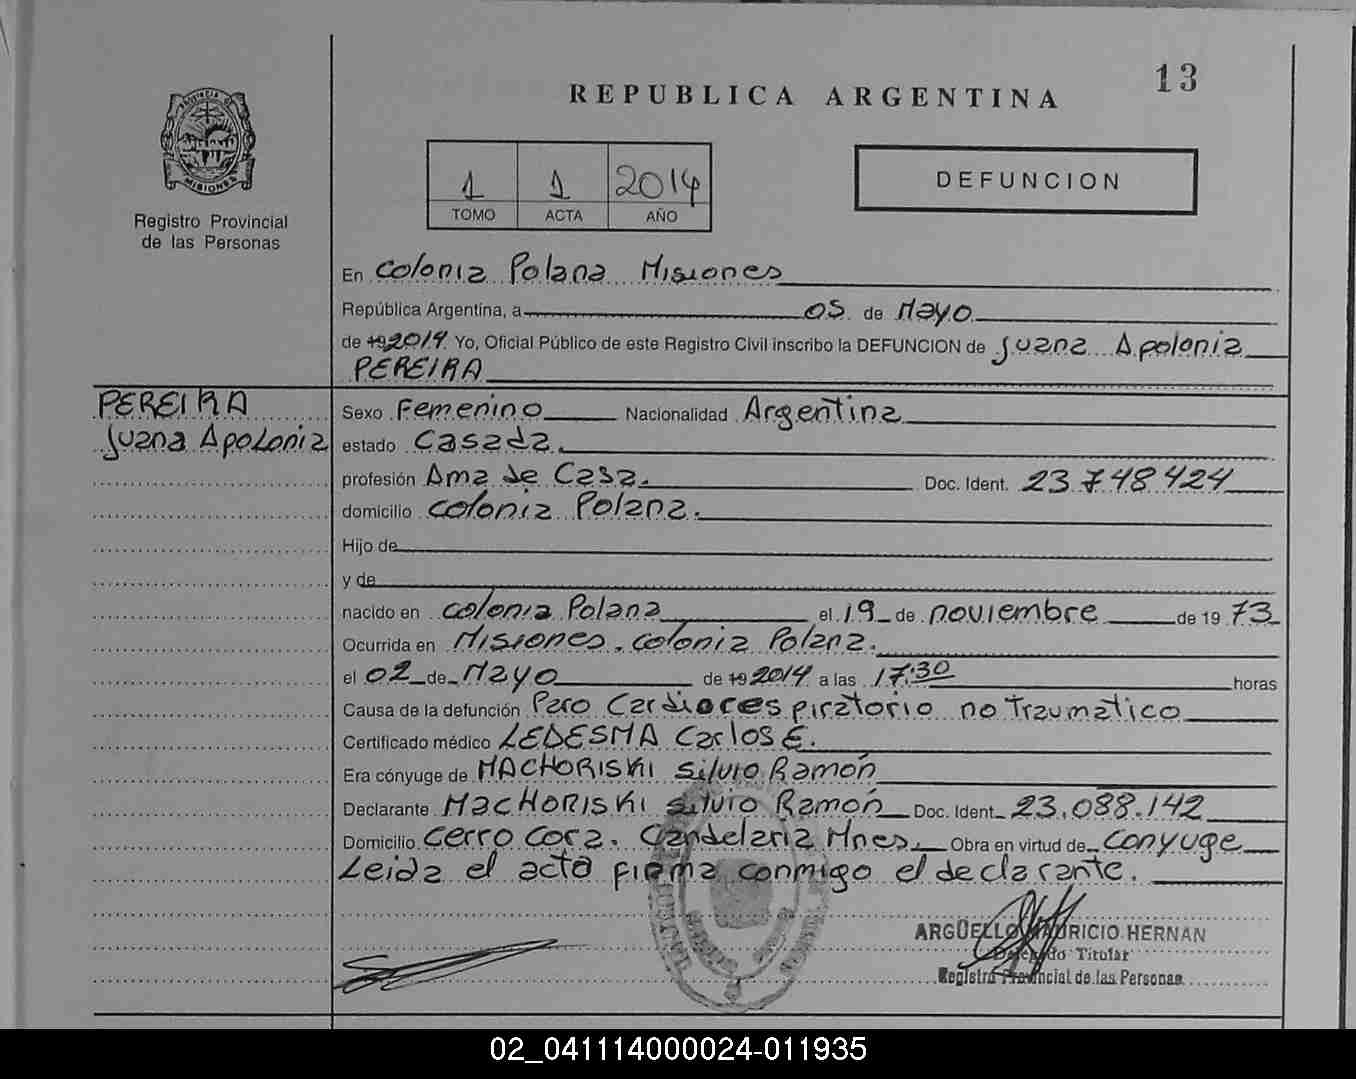 13
REPUBLICA ARGENTINA
PROVINCIA DE
MISIONES
Registro Provincial
de las Personas
1 1 2014
TOMO ACTA AÑO
DEFUNCION
En Colonia Polana Misiones
República Argentina, a 05 de Mayo
de 19 2014 Yo, Oficial Público de este Registro Civil inscribo la DEFUNCION de Juana Apolonia
PEREIRA
PEREIRA
Juana Apolonia
Sexo Femenino Nacionalidad Argentina
estado Casada.
profesión Ama de Casa. Doc. Ident. 23.748.424
domicilio Colonia Polana.
Hijo de
y de
nacido en Colonia Polana el 19 de noviembre de 19 73
Ocurrida en Misiones. Colonia Polana.
el 02 de Mayo de 19 2014 a las 17:30 horas
Causa de la defunción Paro Cardiorespiratorio no traumatico
Certificado médico LEDESMA Carlos E.
Era cónyuge de MACHORISKI Silvio Ramón
Declarante MACHORISKI Silvio Ramón Doc. Ident. 23.088.142
Domicilio Cerro Cora. Candelaria Mnes. Obra en virtud de Conyuge
Leida el acta firma conmigo el declarante.
ARGÜELLO MAURICIO HERNAN
Delegado Titular
Registro Provincial de las Personas
02_041114000024-011935